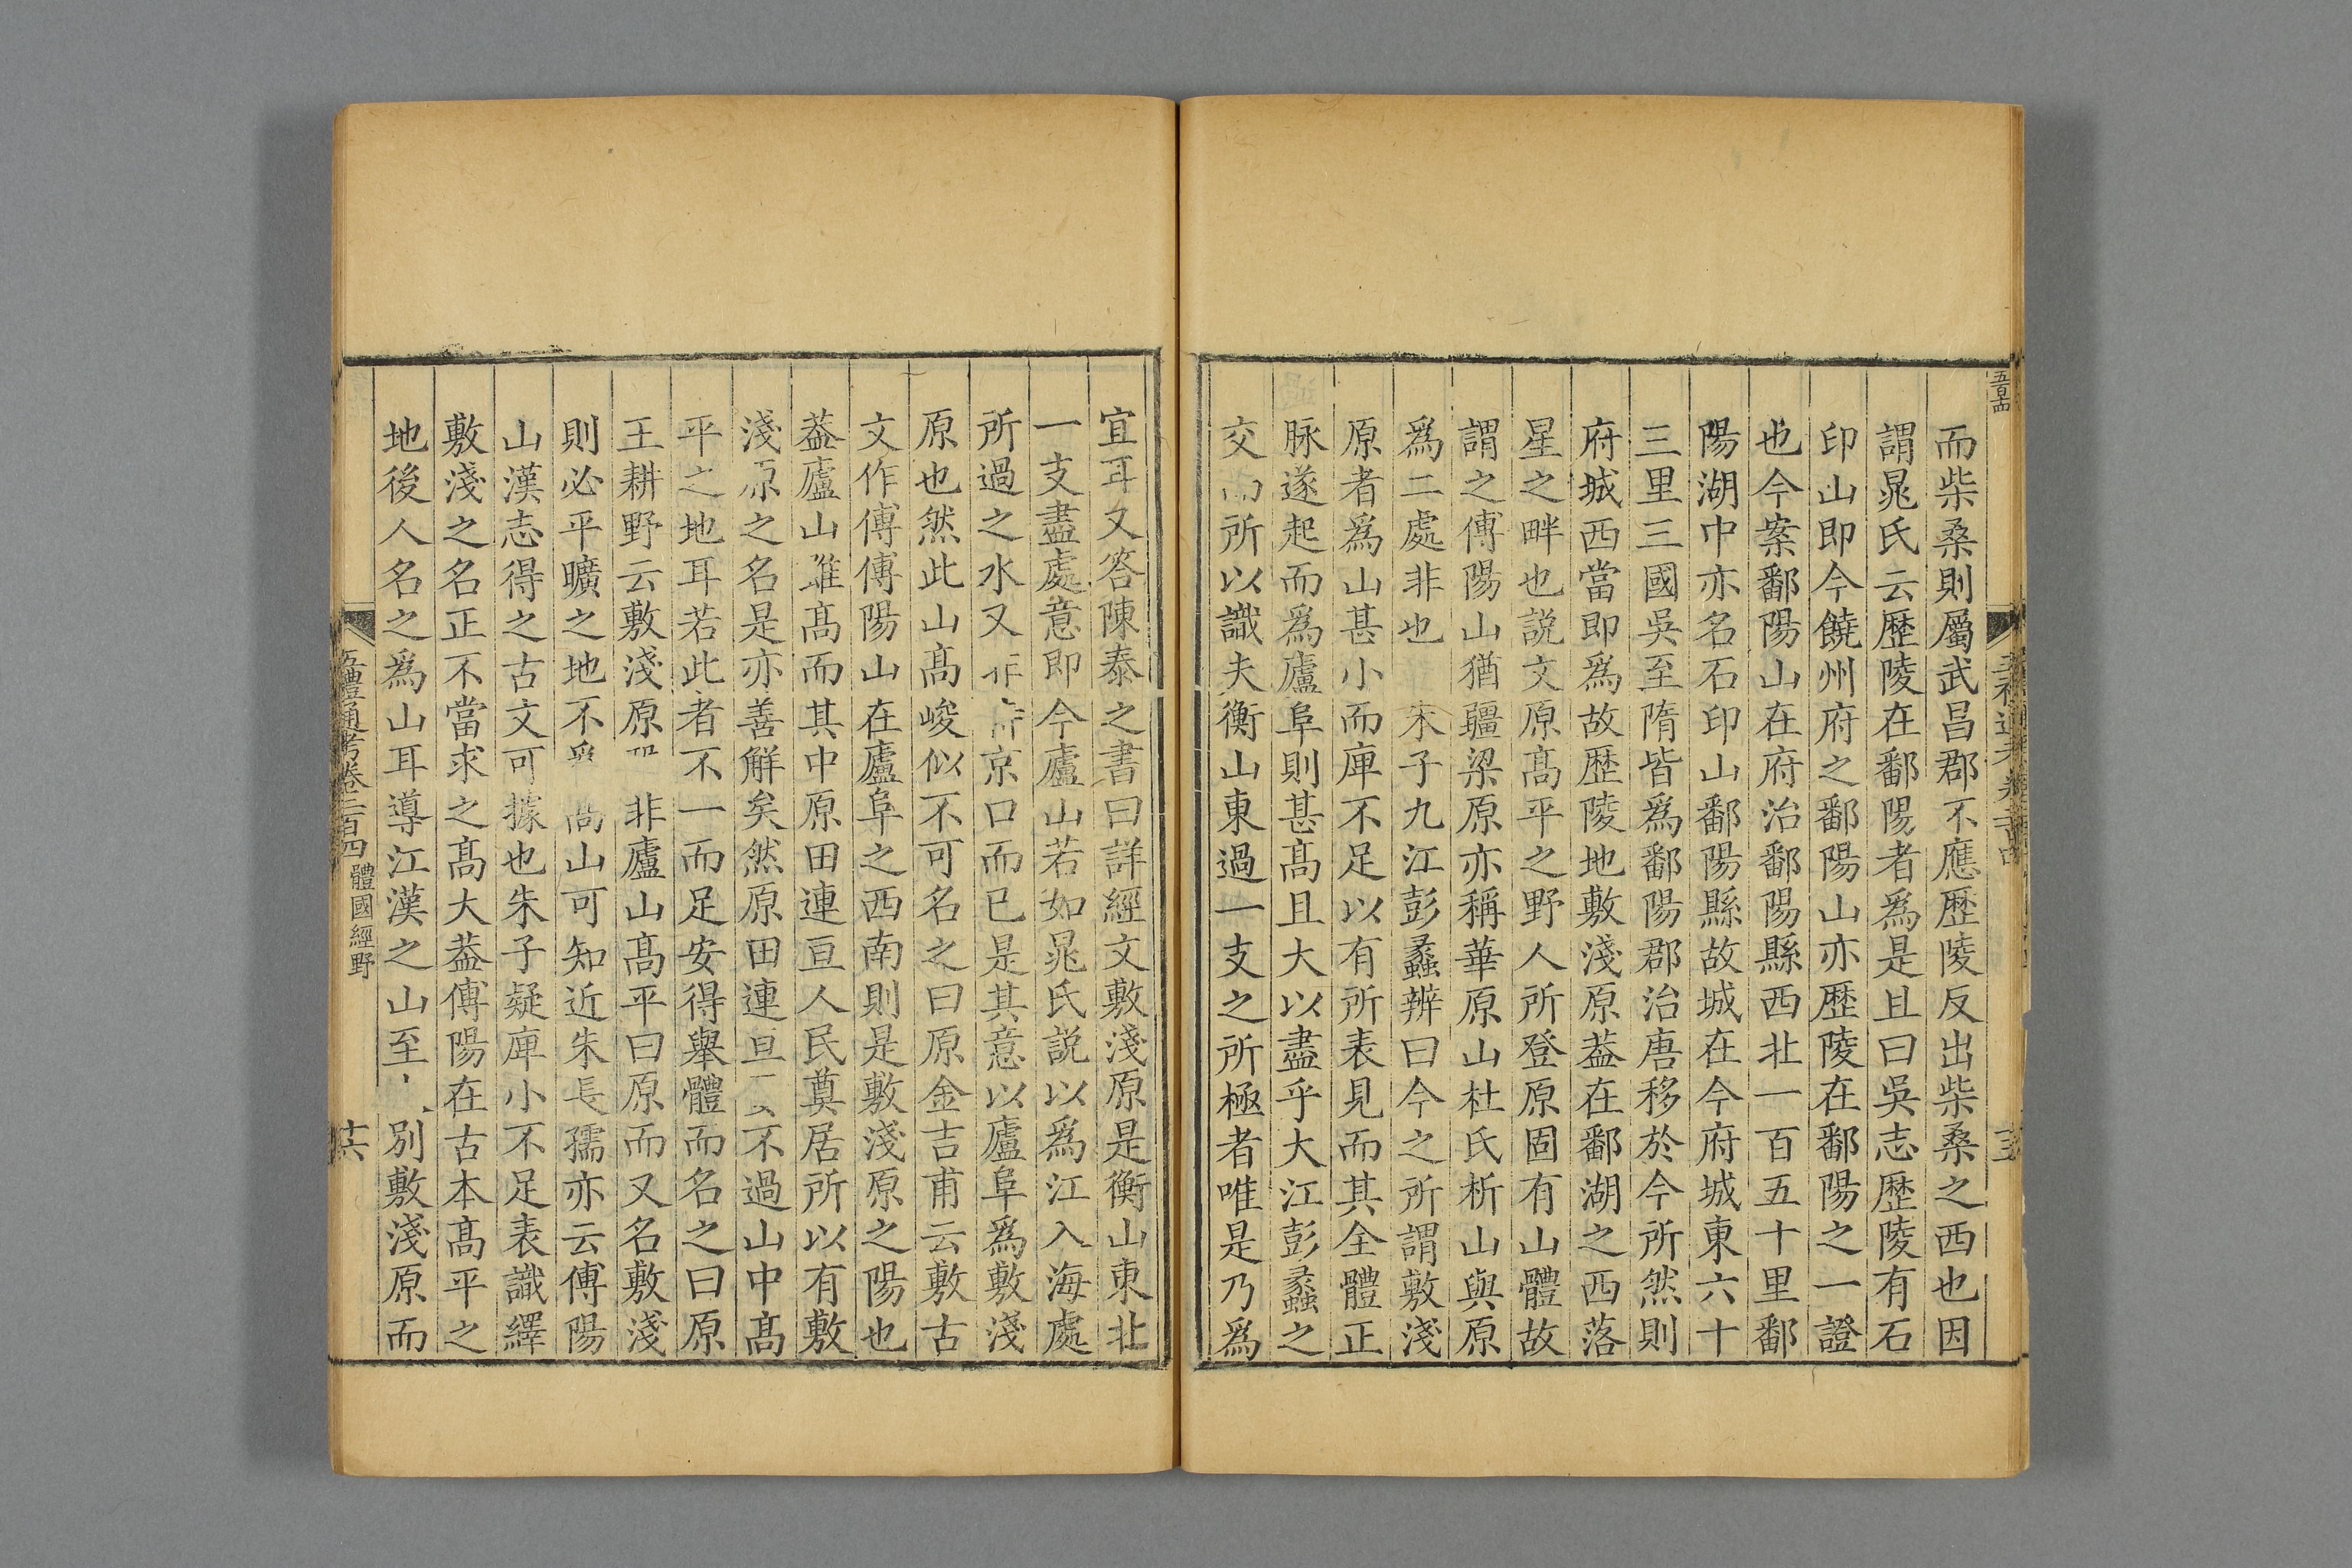 而柴桑則屬武昌郡不應歷陵反出柴桑之西也因
謂晁氏云歷陵在鄱陽者爲是且曰吳志歷陵有石
印山即今饒州府之鄱陽山亦歷陵在鄱陽之一證
也今案鄱陽山在府治鄱陽縣西北一百五十里鄱
陽湖中亦名石印山鄱陽縣故城在今府城東六十
三里三國吳至隋皆爲鄱陽郡治唐移於今所然則
府城西當即爲故歷陵地敷淺原葢在鄱湖之西落
星之畔也説文原髙平之野人所登原固有山體故
謂之傅陽山猶疆梁原亦稱華原山杜氏析山與原
爲二處非也 朱子九江彭蠡辨曰今之所謂敷淺
原者爲山甚小而庳不足以有所表見而其全體正
脉遂起而爲廬阜則甚髙且大以盡乎大江彭蠡之
交而所以識夫衡山東過一支之所極者唯是乃爲
宜耳又答陳泰之書曰詳經文敷淺原是衡山東北
一支盡處意即今廬山若如晁氏説以爲江入海處
所過之水又京口而已是其意以廬阜爲敷淺
原也然此山髙峻似不可名之曰原金吉甫云敷古
文作傅傅陽山在廬阜之西南則是敷淺原之陽也
葢廬山雖髙而其中原田連亘人民奠居所以有敷
淺原之名是亦善解矣然原田連亘不過山中髙
平之地耳若此者不一而足安得舉體而名之曰原
王耕野云敷淺原非廬山髙平曰原而又名敷淺
則必平曠之地不爲髙山可知近朱長孺亦云傅陽
山漢志得之古文可據也朱子疑庳小不足表識繹
敷淺之名正不當求之髙大葢傅陽在古本髙平之
地後人名之爲山耳導江漢之山至别敷淺原而
五禮通考卷二百四 體國經野 十六